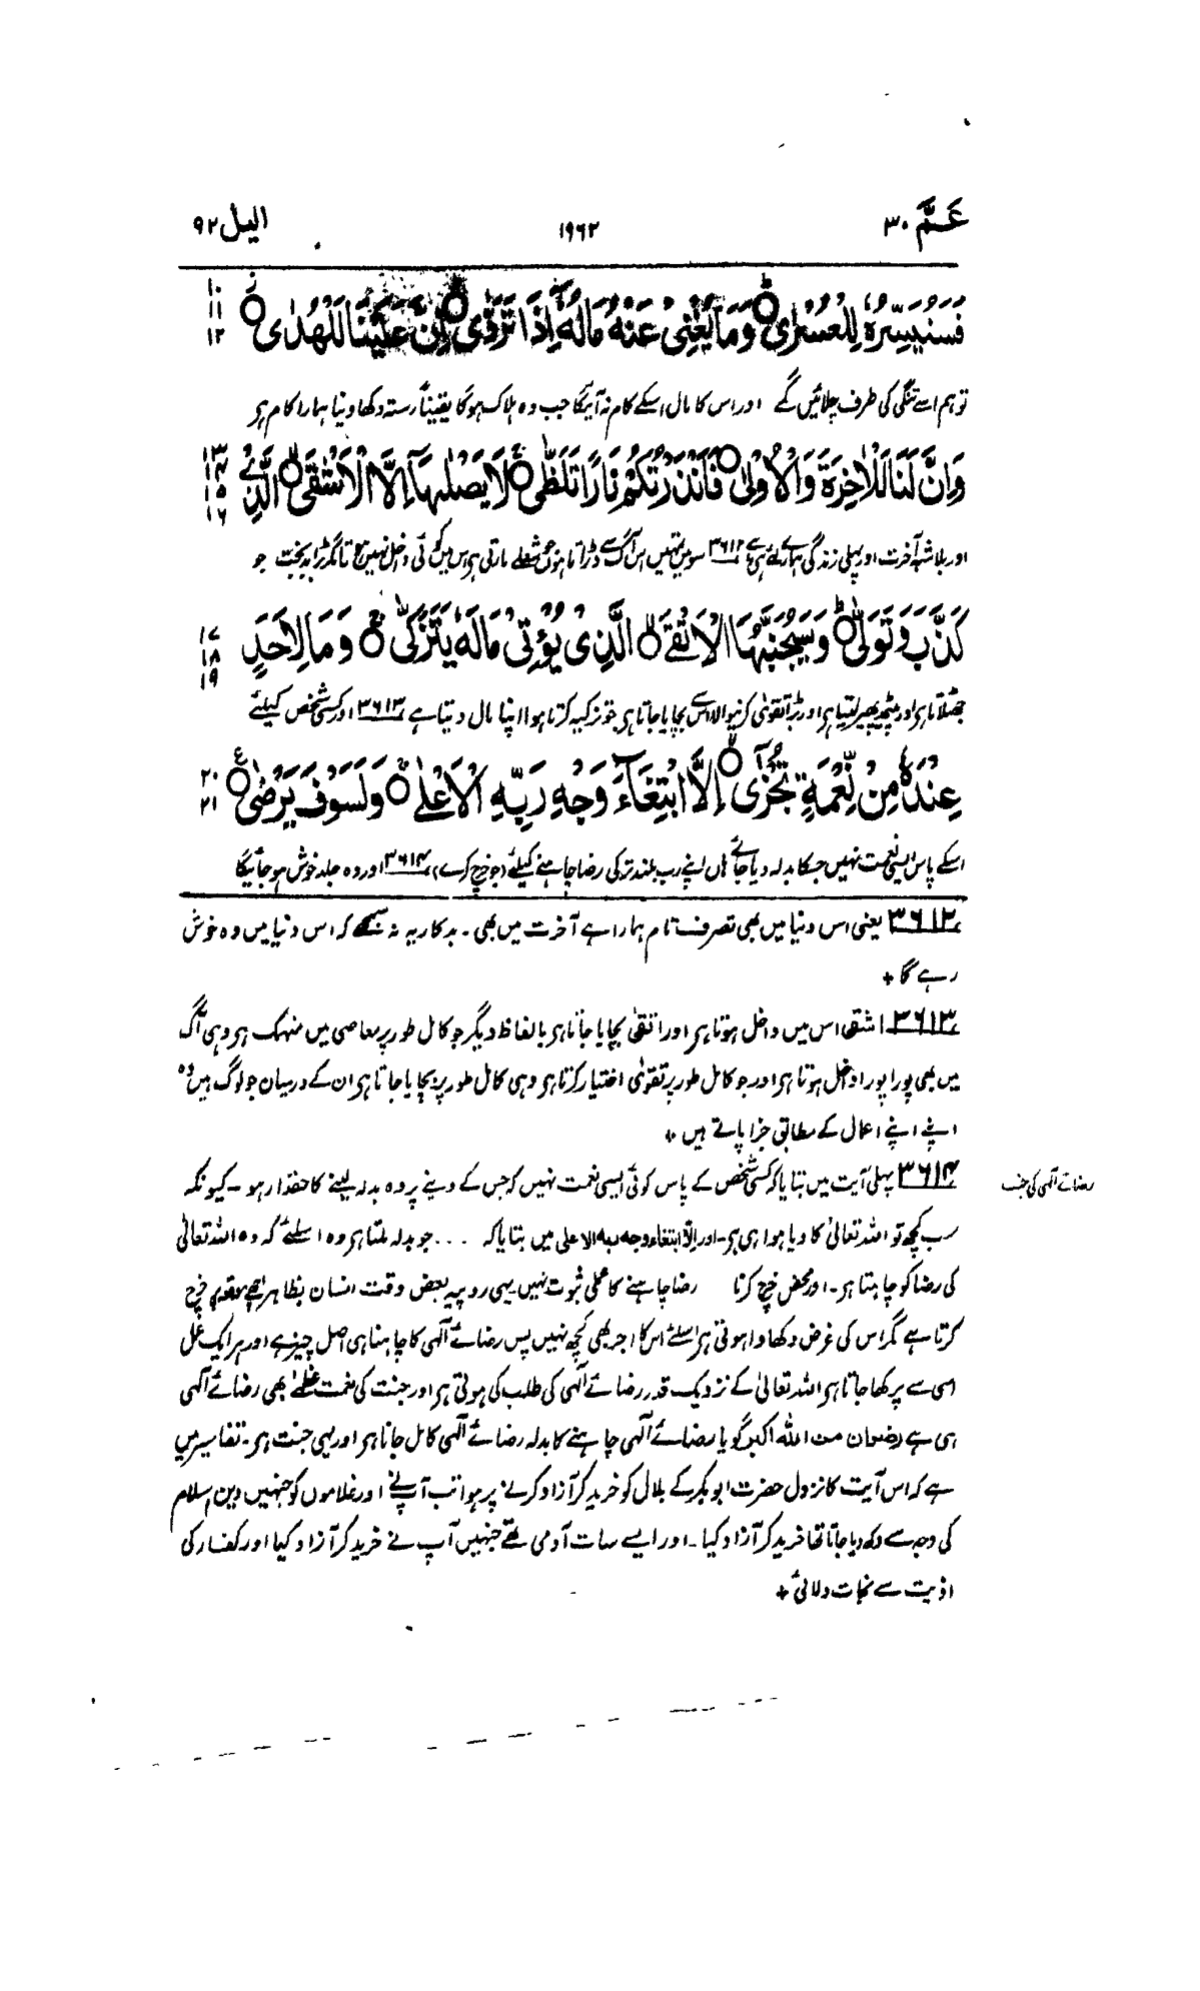 عَمَّ ۳۰ ۱۹۶۲ الیل ۹۲
فَسَنُيَسِّرُهٗ لِلْعُسْرٰى ۝ وَمَا يُغْنِيْ عَنْهُ مَالُهٗٓ اِذَا تَرَدّٰى ۝ اِنَّ عَلَيْنَا لَلْهُدٰى ۝ ۱۰ ۱۱ ۱۲
تو ہم اسے تنگی کی طرف چلائیں گے اور اس کا مال اسکے کام نہ آئیگا جب وہ ہلاک ہوگا یقیناً رستہ دکھا دینا ہمارا کام ہے
وَاِنَّ لَنَا لَلْاٰخِرَةَ وَالْاُوْلٰى ۝ فَاَنْذَرْتُكُمْ نَارًا تَلَظّٰى ۝ لَا يَصْلٰىهَآ اِلَّا الْاَشْقَى ۝ الَّذِيْ ۱۳ ۱۴ ۱۵ ۱۶
اور بلاشبہ آخرت اور پہلی زندگی ہمارے لئے ہی ہے ۳۶۱۲ سو میں تمہیں اس آگ سے ڈراتا ہوں جو شعلے مارتی ہے اس میں کوئی داخل نہیں ہوتا مگر بڑا بدبخت جو
كَذَّبَ وَتَوَلّٰى ۝ وَسَيُجَنَّبُهَا الْاَتْقَى ۝ الَّذِيْ يُؤْتِيْ مَالَهٗ يَتَزَكّٰى ۝ وَمَا لِاَحَدٍ ۱۷ ۱۸ ۱۹
جھٹلاتا ہے اور پیٹھ پھیر لیتا ہے اور بڑا تقویٰ کرنیوالا اس سے بچایا جاتا ہے جو تزکیہ کرتا ہوا اپنا مال دیتا ہے ۳۶۱۳ اور کسی شخص کیلئے
عِنْدَهٗ مِنْ نِّعْمَةٍ تُجْزٰٓى ۝ اِلَّا ابْتِغَآءَ وَجْهِ رَبِّهِ الْاَعْلٰى ۝ وَلَسَوْفَ يَرْضٰى ۝ ع ۲۰ ۲۱
اسکے پاس ایسی نعمت نہیں جسکا بدلہ دیا جائے ہاں اپنے رب بلند تر کی رضا چاہنے کیلئے (جو خرچ کرے) ۳۶۱۴ اور وہ جلد خوش ہو جائیگا
۳۶۱۲ یعنی اس دنیا میں بھی تصرف تام ہمارا ہے آخرت میں بھی۔ بدکار یہ نہ سمجھے کہ اس دنیا میں وہ خوش
رہے گا +
۳۶۱۳ اشقی اس میں داخل ہوتا ہے اور اتقیٰ بچایا جاتا ہے بالفاظ دیگر جو کامل طور پر معاصی میں منہمک ہے وہی آگ
میں بھی پورا پورا داخل ہوتا ہے اور جو کامل طور پر تقویٰ اختیار کرتا ہے وہی کامل طور پر بچایا جاتا ہے ان کے درمیان جو لوگ ہیں وہ
اپنے اپنے اعمال کے مطابق جزا پاتے ہیں +
۳۶۱۴ پہلی آیت میں بتایا کہ کسی شخص کے پاس کوئی ایسی نعمت نہیں کہ جس کے دینے پر وہ بدلہ لینے کا حقدار ہو۔ کیونکہ
رضائے الٰہی کی
سب کچھ تو اللہ تعالیٰ کا دیا ہوا ہی ہے۔ اور الا ابتغاء وجہ ربہ الاعلیٰ میں بتایا کہ ... جو بدلہ ملتا ہے وہ اسلئے کہ وہ اللہ تعالیٰ
کی رضا کو چاہتا ہے۔ اور محض خرچ کرنا رضا چاہنے کا عملی ثبوت نہیں یہی روپیہ بعض وقت انسان بظاہر اچھے موقعہ پر خرچ
کرتا ہے مگر اس کی غرض دکھاوا ہوتی ہے اسلئے اس کا اجر بھی کچھ نہیں پس رضائے الٰہی کا چاہنا ہی اصل چیز ہے اور ہر ایک عمل
اسی سے پرکھا جاتا ہے اللہ تعالیٰ کے نزدیک قدر رضائے الٰہی کی طلب کی ہوتی ہے اور جنت کی نعمت عظمےٰ بھی رضائے الٰہی
ہی ہے رضوان من اللہ اکبر گویا رضائے الٰہی چاہنے کا بدلہ رضائے الٰہی کا مل جانا ہے اور یہی جنت ہے۔ تفاسیر میں
ہے کہ اس آیت کا نزول حضرت ابوبکر کے بلال کو خرید کر آزاد کرنے پر ہوا تب آپ نے اور غلاموں کو جنہیں دین اسلام
کی وجہ سے دکھ دیا جاتا تھا خرید کر آزاد کیا۔ اور ایسے سات آدمی تھے جنہیں آپ نے خرید کر آزاد کیا اور کفار کی
اذیت سے نجات دلائی +